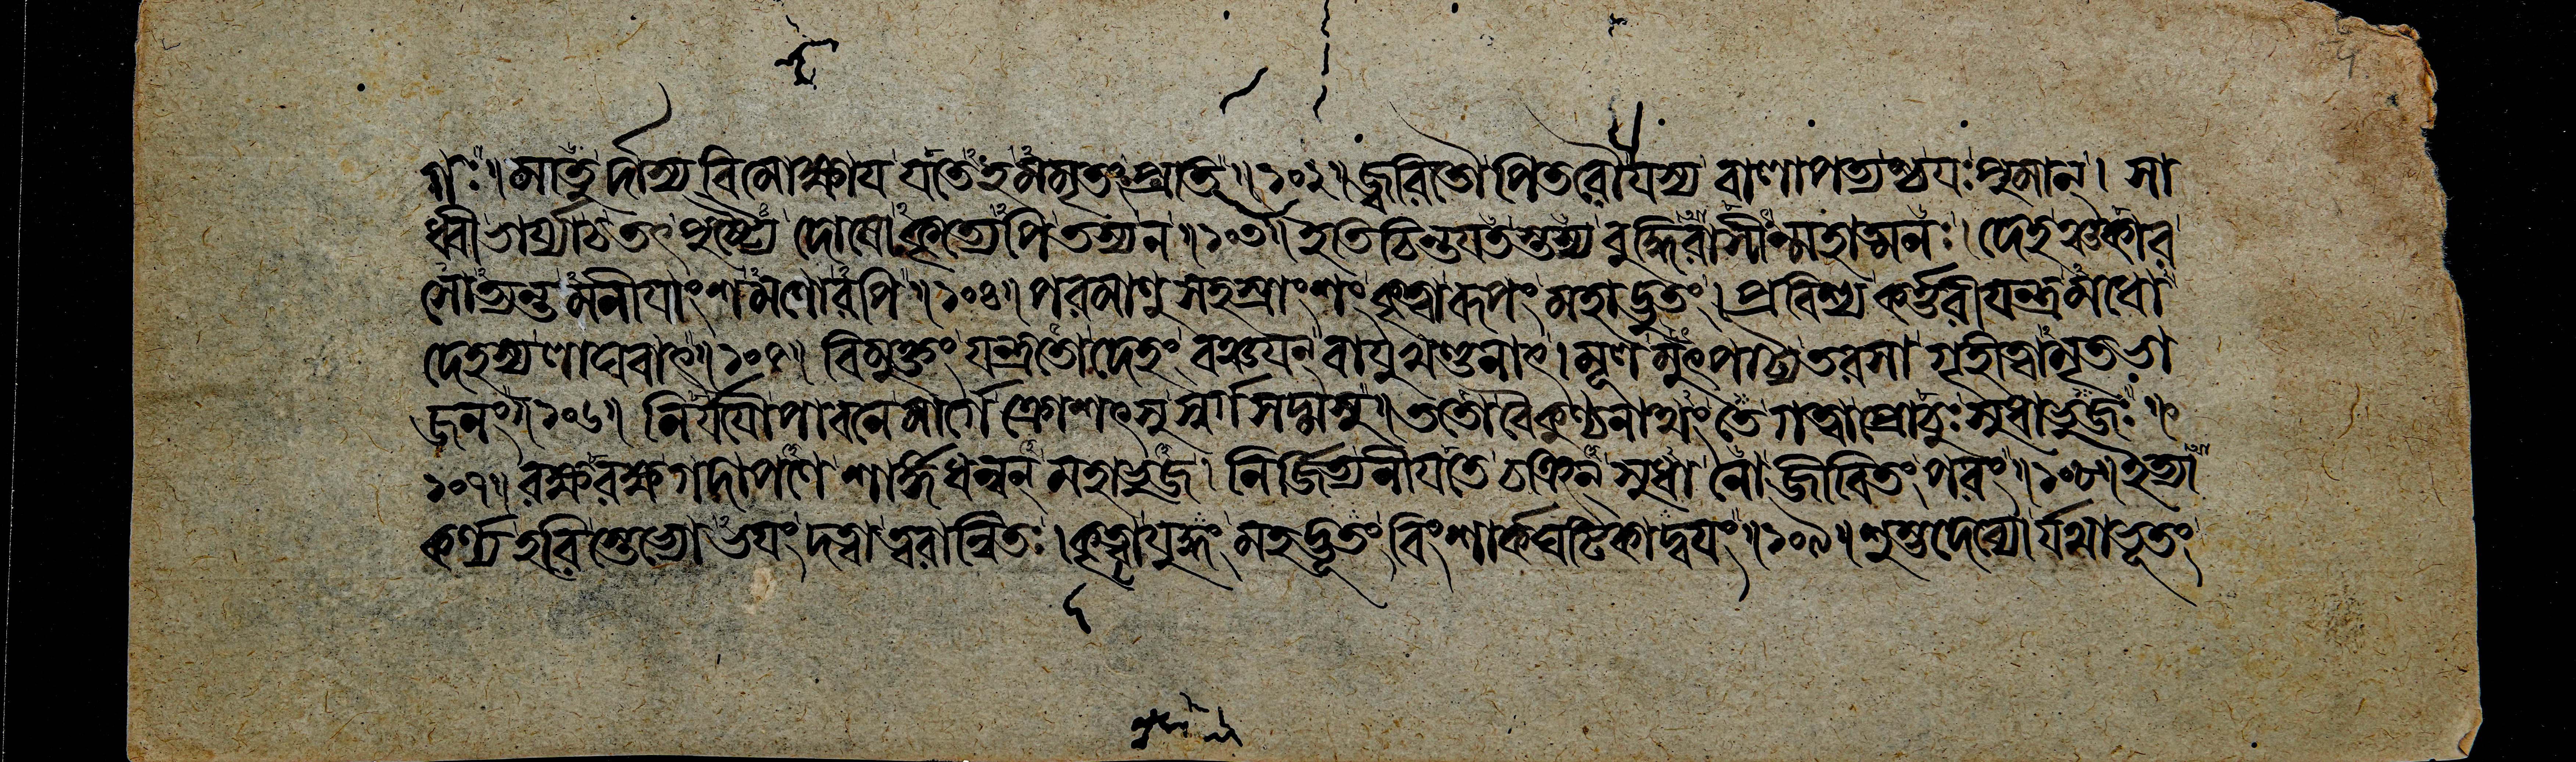 গঃ॥ মাতুর্দাস্য বিমোক্ষায যতেহমমৃতং প্রতি॥১০২॥ জ্বরিতৌ পিতরৌ যস্য বালাপত্যস্ত্রযঃ পুমান্। সা
ধ্বী ভার্য্যা চ তৎপুষ্ট্যৈ দোষোকৃত্যেপি তস্য ন॥১০৩॥ ইতি চিন্তযতস্তস্য বুদ্ধিরাসীন্মহাত্মনঃ। দেহঞ্চকার
সোত্যন্তমনীযাংশমণোরপি॥১০৪॥ পরমাণুসহস্রাংশং কৃত্বারূপং মহাদ্ভুতং। প্রবিশ্য কর্ত্তরীযন্ত্রমধো
দেহস্য লাঘবাৎ॥১০৫॥ বিমুক্তং যন্ত্রতো দেহং বঞ্চযন্ বাযুমণ্ডলাৎ। মূলমুৎপাট্য তরসা গৃহীত্বামৃতভা
জনং॥১০৬॥ নির্যযৌ পাবনে মার্গে ক্রোশৎসু সিদ্মসু॥ ততো বৈকুণ্ঠনাথং তে গত্বা প্রোচুঃ সুধাভুজঃ॥
১০৭॥ রক্ষ রক্ষ গদাপাণে শার্ঙ্গধন্বন্ মহাভুজ। নির্জিত্য নীযতে সুধা নো জীবিতং পরং॥১০৮॥ ইত্যা
কর্ণ্য হরিস্তেভ্যোভযং দত্বা ত্বরান্বিতঃ। কৃত্বা যুদ্ধং মহদ্ভূতং বিংশার্কঘটিকাদ্বযং॥১০৯॥ শুম্ভদেব্যোর্যথাভূতং